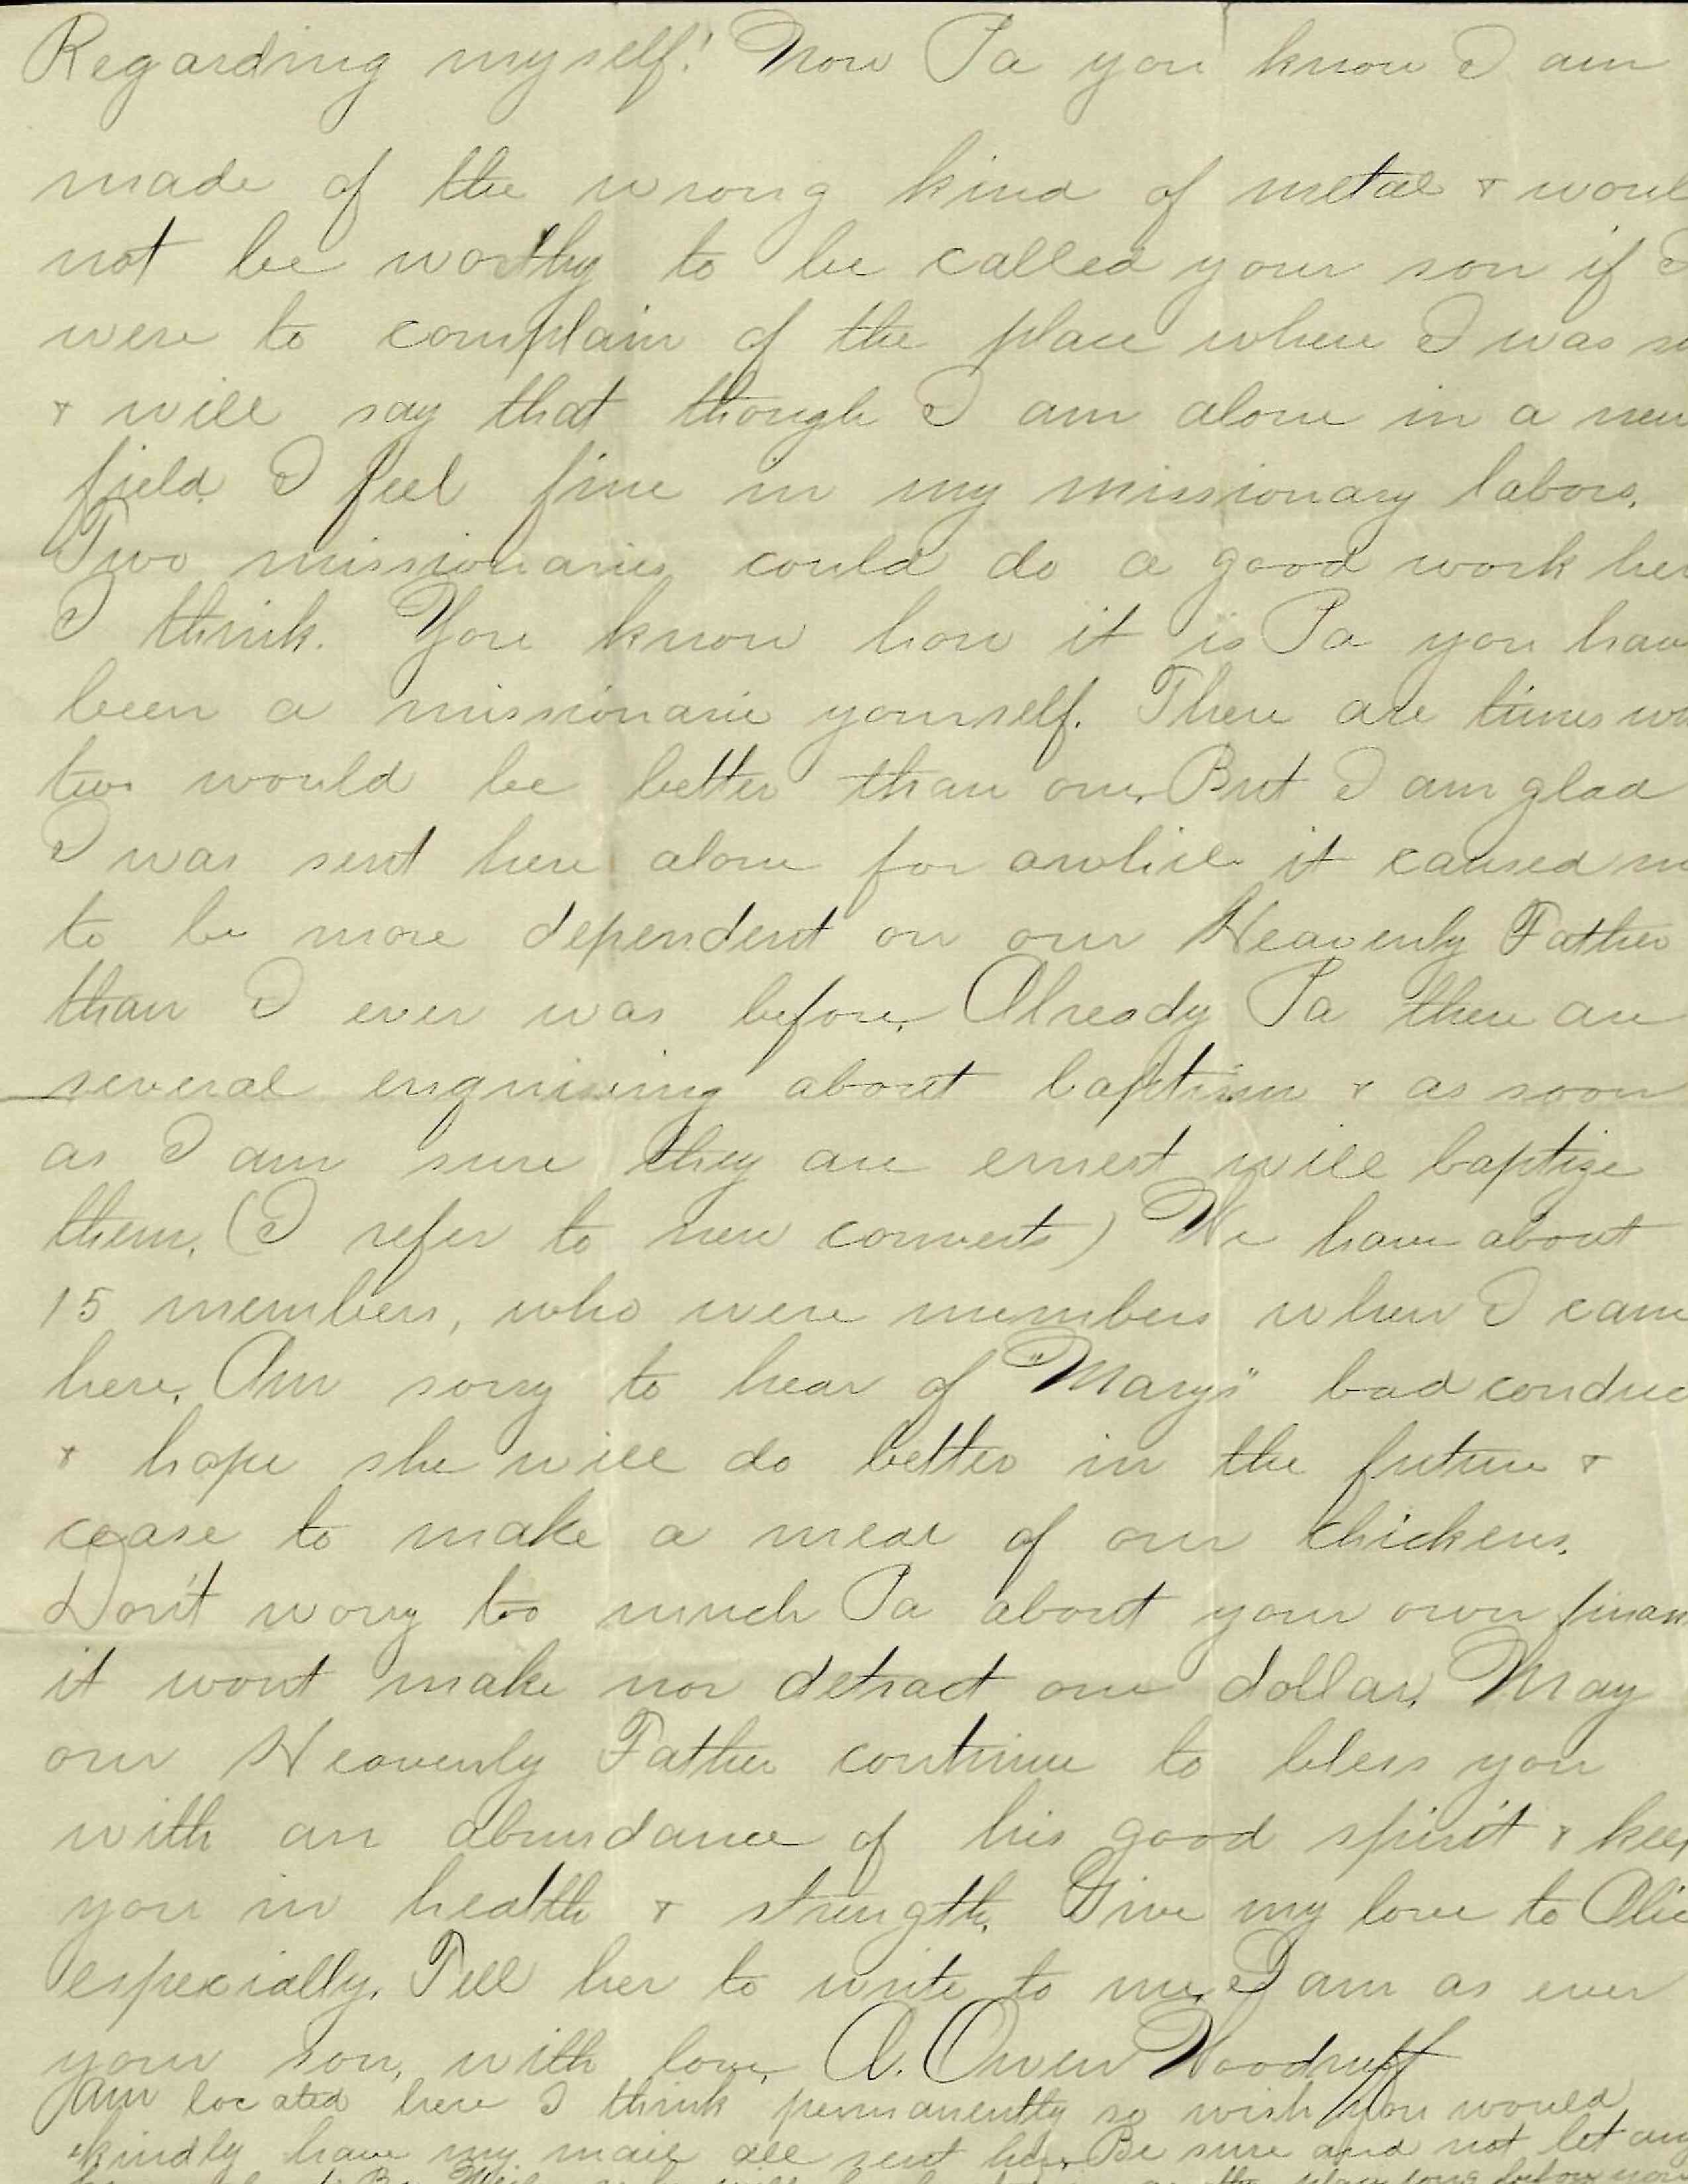 Regarding myself! Now Pa you know I am
made of the wrong kind of metal & woul
not be worthy to be called your son if I
were to complain of the place where I was se
& will say that though I am alone in a new
field I feel fine in my missionary labors.
Two missionaries could do a good work her
I think. You know how it is Pa you hav
been a missionarie yourself. There are times wh
two would be better than one. But I am glad
I was sent here alone for awhile it caused m
to be more dependent on our Heavenly Father
than I ever was before. Already Pa there are
several enquiring about baptism & as soon
as I am sure they are ernest will baptize
them. (I refer to new converts) We have about
15 members, who were members when I came
here. Am sorry to hear of "Marys" bad conduc
& hope she will do better in the future &
cease to make a meal of our chickens.
Don't worry too much Pa about your own finan
it wont make nor detract one dollar. May
our Heavenly Father continue to bless you
with an abundance of his good spirit & keep
you in health & strength. Give my love to Alic
especially. Tell her to write to me. I am as ever
your son, with love, A. Owen Woodruff
Am located here I think permanently so wish you would
kindly have my mail all sent here. Be sure and not let any